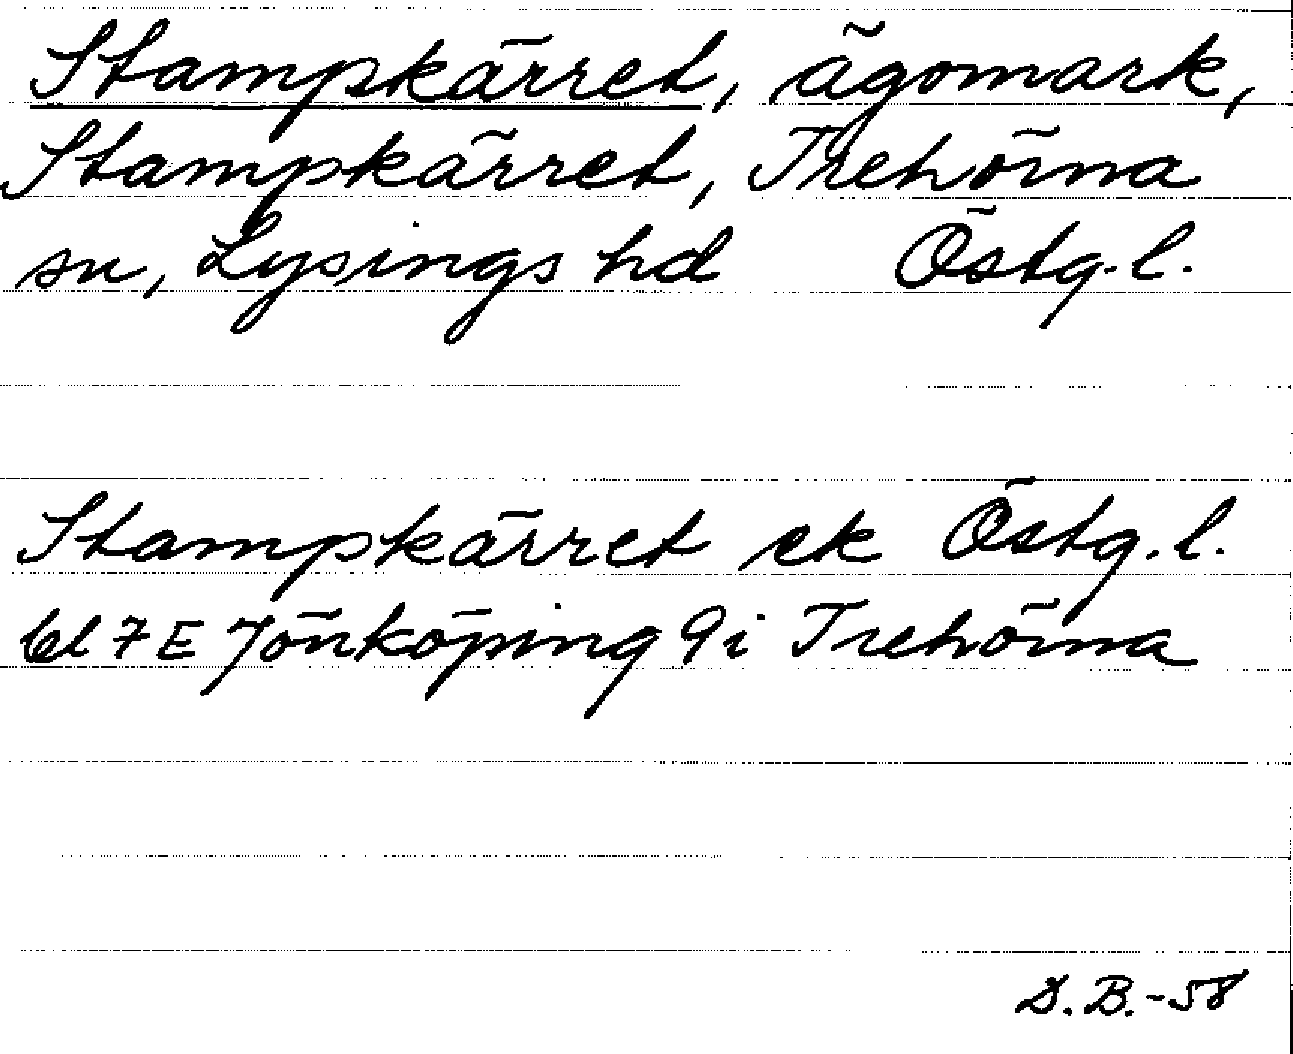 Stampkärret, ägomark,
Stampkärret, Trehörna
sn, Lysings hd Östg.l.
Stampkärret ek Östg.l.
bl 7 E Jönköping 9i Trehörna
D.B.-58